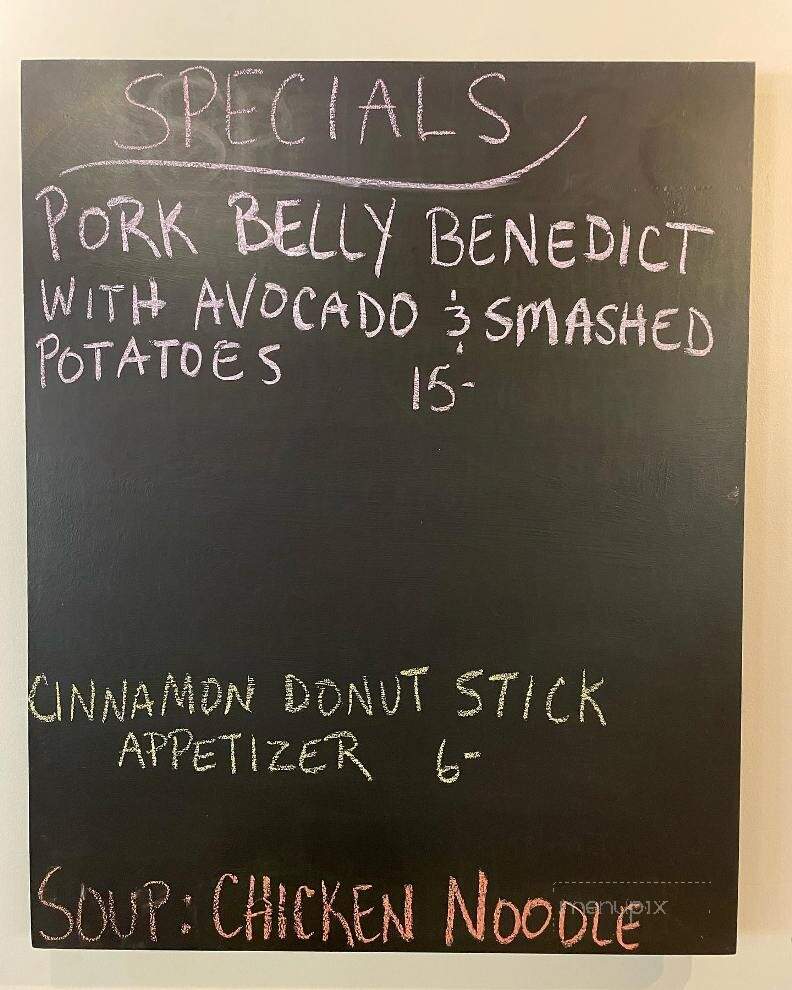 SPECIALS
PORK BELLY BENEDICT
WITH AVOCADO & SMASHED
POTATOES 15-
CINNAMON DONUT STICK
APPETIZER 6-
SOUP: CHICKEN NOODLE
menupix